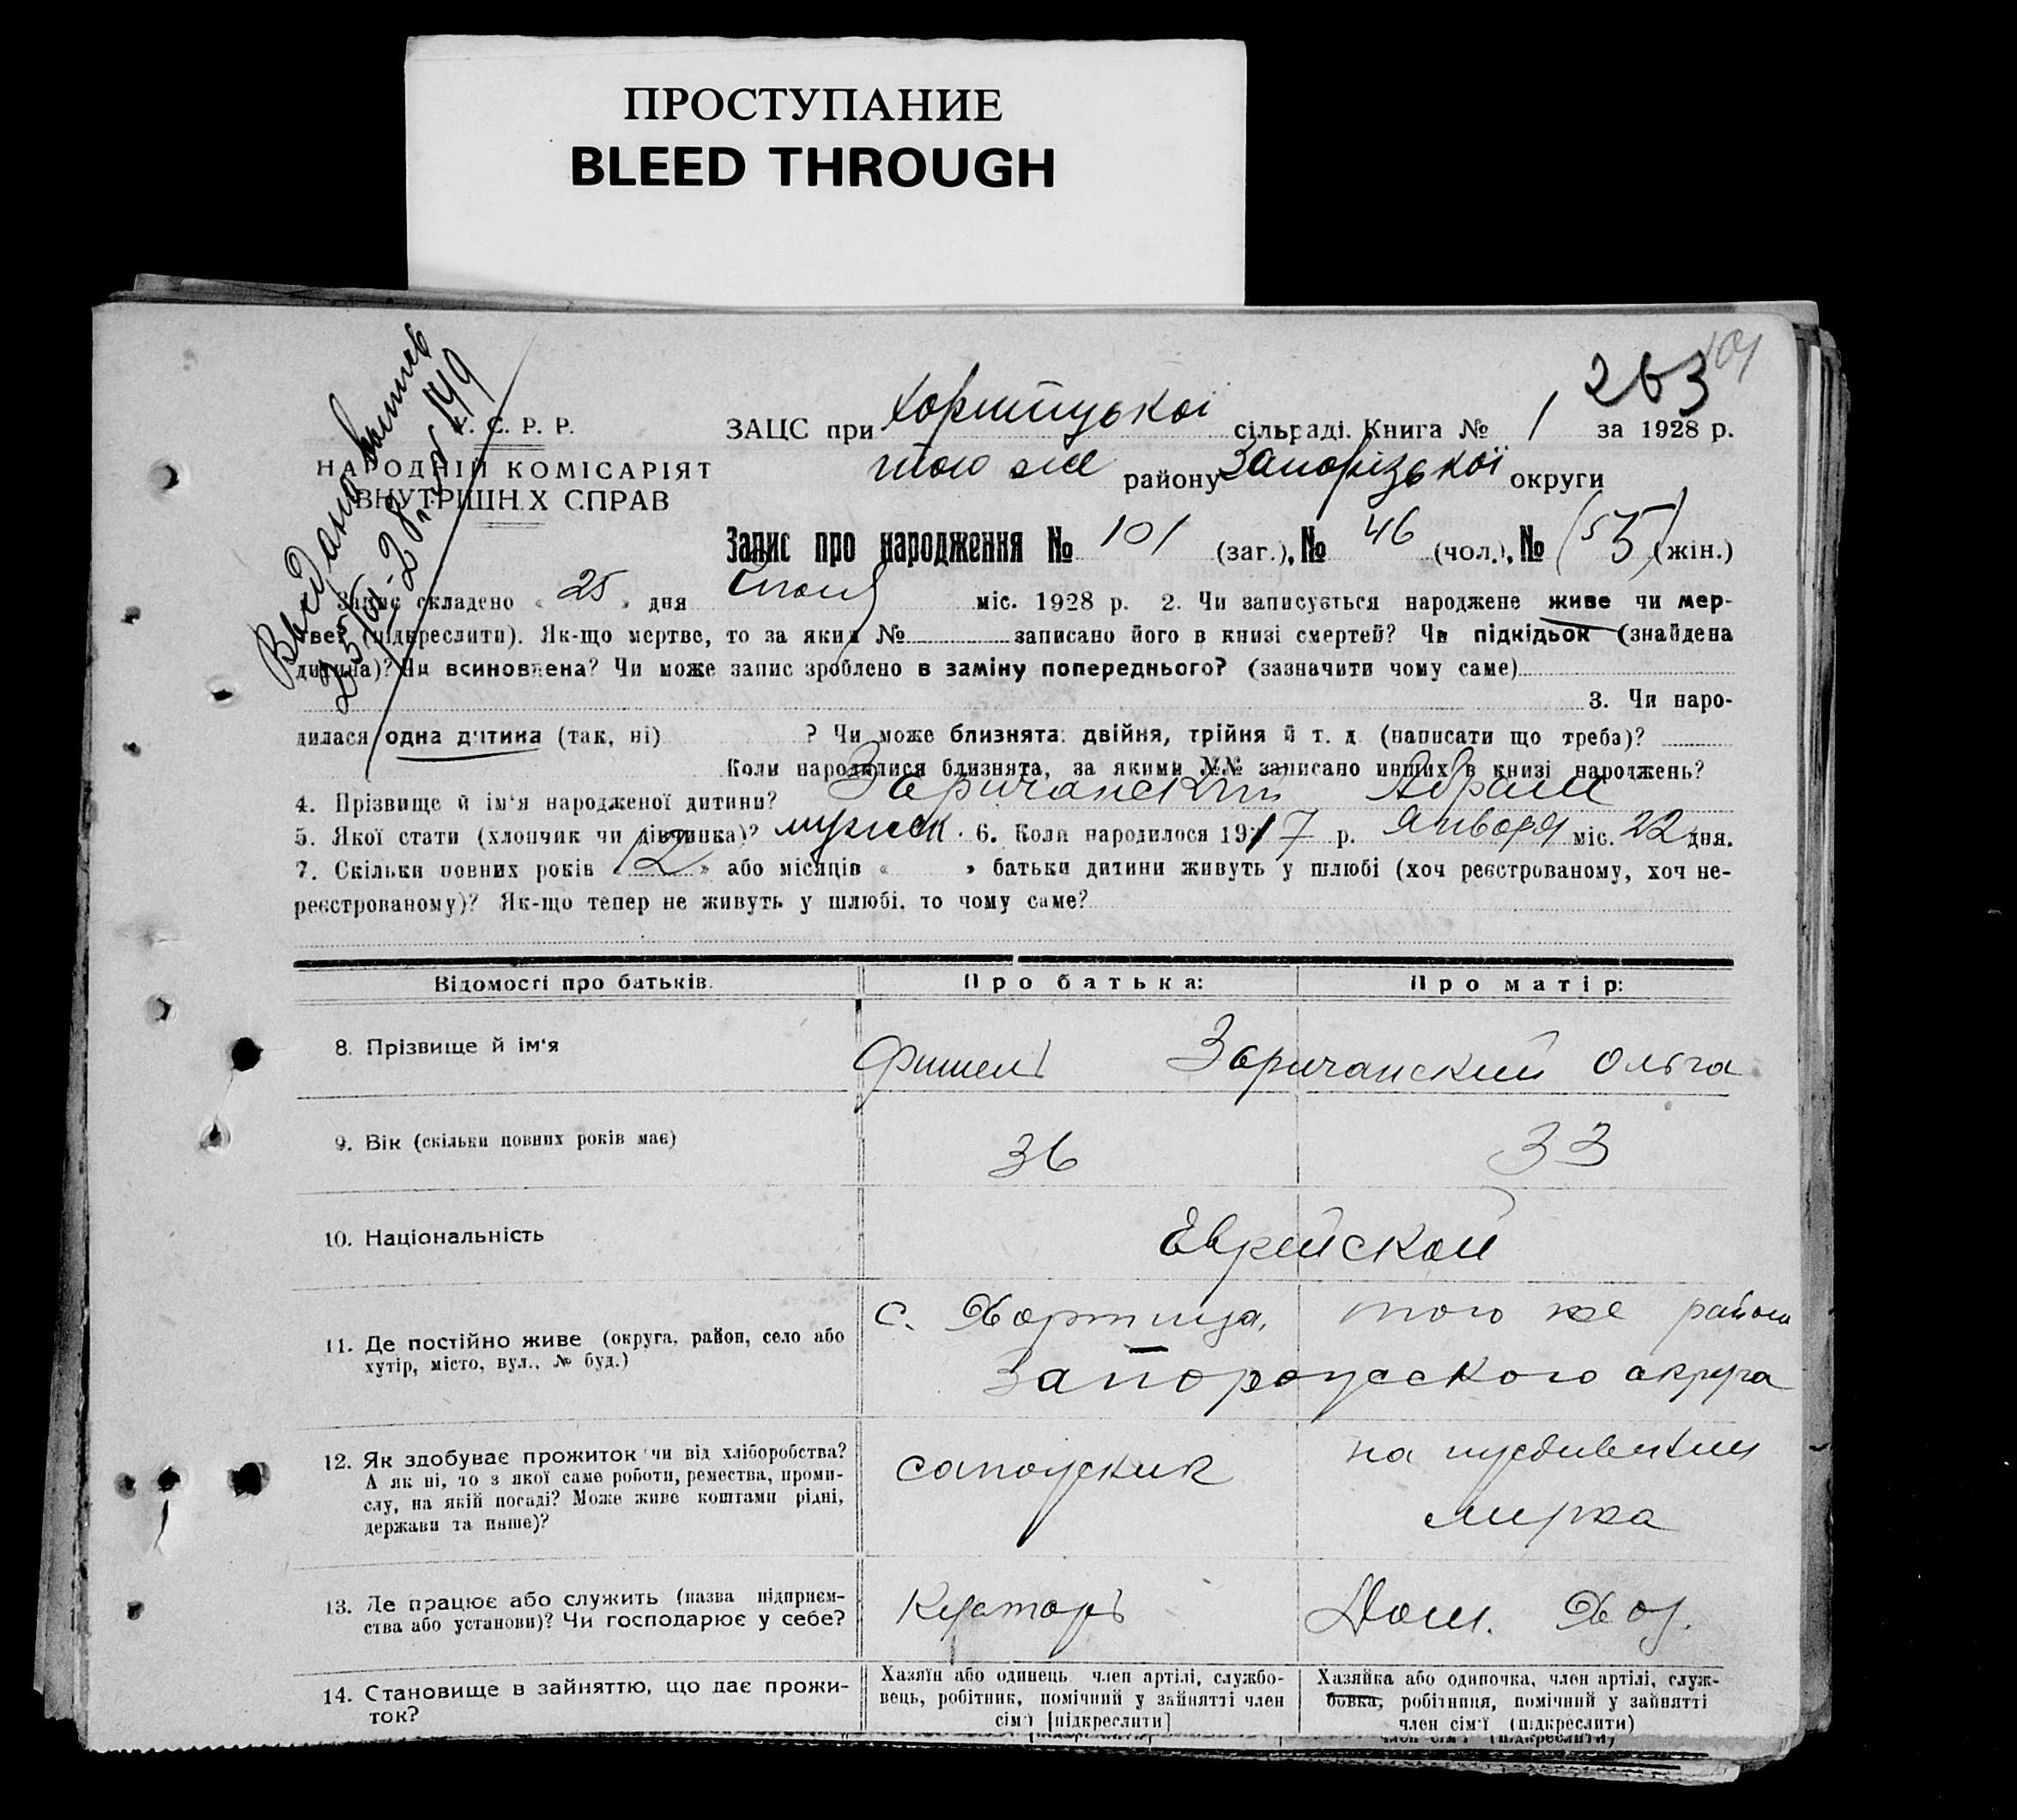 ПРОСТУПАНИЕ
BLEED THROUGH
263
У. С. Р. Р.
НАРОДНІЙ КОМІСАРІЯТ
ВНУТРІШН.Х СПРАВ
ЗАЦС при Хортицької сільраді. Книга № 1 за 1928 р.
того же району Запорізької округи
Запис про народження № 101 (заг.), № 46 (чол.), № (55) (жін.)
Запис складено « 25 » дня июня міс. 1928 р. 2. Чи записується народжене живе чи мер-
тве (підкреслити). Як-що мертве, то за яким № записано його в книзі смертей? Чи підкідьок (знайдена
дитина)? Чи всиновлена? Чи може запис зроблено в заміну попереднього? (зазначити чому саме)
3. Чи наро-
дилася одна дитина (так, ні) ? Чи може близнята: двійня, трійня й т. д. (написати що треба)?
Коли народилися близнята, за якими №№ записано инших в книзі народжень?
4. Прізвище й ім'я народженої дитини? Заричанский Абрам
5. Якої стати (хлопчик чи дівчинка)? мужск. 6. Коли народилося 1917 р. января міс. 22 дня.
7. Скільки повних років « 12 » або місяців « » батьки дитини живуть у шлюбі (хоч реєстрованому, хоч не-
реєстрованому)? Як-що тепер не живуть у шлюбі, то чому саме?
Відомості про батьків.
Про батька:
Про матір:
8. Прізвище й ім'я
Фишель Заричанский Ольга
9. Вік (скільки повних років має)
36
33
10. Національність
Еврейской
11. Де постійно живе (округа, район, село або
хутір, місто, вул., № буд.)
с. Хортица, того же района
Запорожского округа
12. Як здобуває прожиток чи від хліборобства?
А як ні, то з якої саме роботи, ремества, проми-
слу, на якій посаді? Може живе коштами рідні,
держави та инше)?
сапожник
на иждивении
мужа
13. Де працює або служить (назва підприєм-
ства або установи)? Чи господарює у себе?
Кустарь
Дом. Хоз.
14. Становище в зайняттю, що дає прожи-
ток?
Хазяїн або одинець, член артілі, службо-
вець, робітник, помічний у зайнятті член
сім'ї [підкреслити]
Хазяйка або одиночка, член артілі, служ-
бовка, робітниця, помічний у зайнятті
член сім'ї (підкреслити)